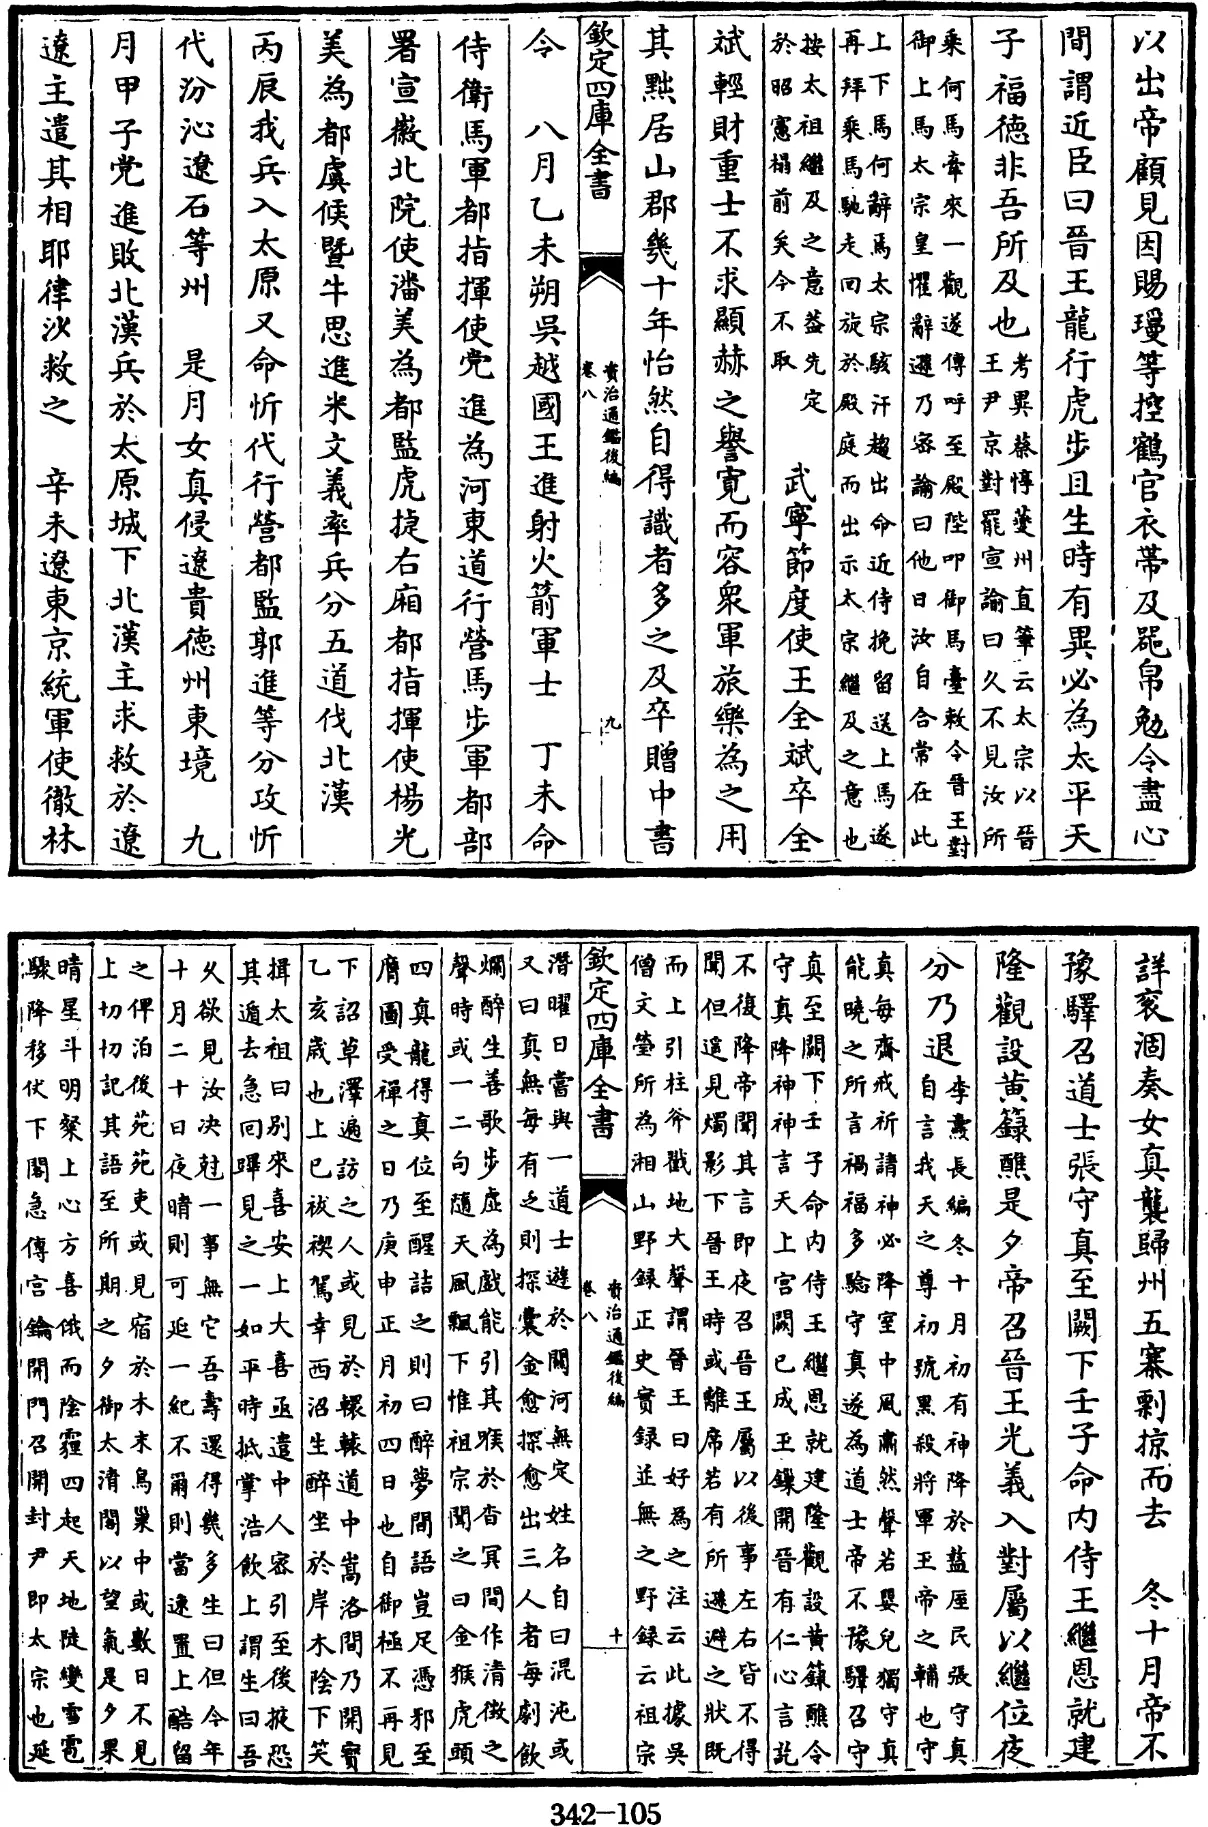 以出帝顧見因賜璟等控鶴官衣帶及器帛勉令盡心
間謂近臣曰晉王龍行虎步且生時有異必為太平天
子福德非吾所及也考異蔡惇夔州直筆云太宗以晉
王尹京對罷宣諭曰久不見汝所
乘何馬牽來一觀遂傳呼至殿陛叩御馬臺敕令晉王對
御上馬太宗皇懼辭遜乃密諭曰他日汝自合常在此
上下馬何辭焉太宗駭汗趨出命近侍挽留送上馬遂
再拜乘馬馳走回旋於殿庭而出示太宗繼及之意也
按太祖繼及之意葢先定
於昭憲榻前矣今不取　武寧節度使王全斌卒全
斌輕財重士不求顯赫之譽寛而容衆軍旅樂為之用
其黜居山郡幾十年怡然自得識者多之及卒贈中書
欽定四庫全書
資治通鑑後編
卷八
九
令　八月乙未朔吳越國王進射火箭軍士　丁未命
侍衛馬軍都指揮使党進為河東道行營馬步軍都部
署宣徽北院使潘美為都監虎捷右廂都指揮使楊光
美為都虞候暨牛思進米文義率兵分五道伐北漢
丙辰我兵入太原又命忻代行營都監郭進等分攻忻
代汾沁遼石等州　是月女真侵遼貴德州東境　九
月甲子党進敗北漢兵於太原城下北漢主求救於遼
遼主遣其相耶律沙救之　辛未遼東京統軍使徹林
詳袞涸奏女真襲歸州五寨剽掠而去　冬十月帝不
豫驛召道士張守真至闕下壬子命内侍王繼恩就建
隆觀設黄籙醮是夕帝召晉王光義入對屬以繼位夜
分乃退李燾長編冬十月初有神降於盩厔民張守真
自言我天之尊初號黑殺將軍玉帝之輔也守
真每齋戒祈請神必降室中風肅然聲若嬰兒獨守真
能曉之所言禍福多驗守真遂為道士帝不豫驛召守
真至闕下壬子命内侍王繼恩就建隆觀設黄籙醮令
守真降神神言天上宫闕已成玉鏁開晉有仁心言訖
不復降帝聞其言即夜召晉王屬以後事左右皆不得
聞但遥見燭影下晉王時或離席若有所遜避之狀既
而上引柱斧戳地大聲謂晉王曰好為之注云此據吳
僧文瑩所為湘山野録正史實録並無之野録云祖宗
欽定四庫全書
資治通鑑後編
卷八
十
潛曜日嘗與一道士遊於關河無定姓名自曰混沌或
又曰真無每有乏則探囊金愈探愈出三人者每劇飲
爛醉生善歌步虚為戲能引其喉於杳冥間作清徵之
聲時或一二句隨天風飄下惟祖宗聞之曰金猴虎頭
四真龍得真位至醒詰之則曰醉夢間語豈足憑邪至
膺圖受禪之日乃庚申正月初四日也自御極不再見
下詔草澤遍訪之人或見於轘轅道中嵩洛間乃開寶
乙亥歲也上巳祓禊駕幸西沼生醉坐於岸木陰下笑
揖太祖曰别來喜安上大喜亟遣中人密引至後掖恐
其遁去急回蹕見之一如平時抵掌浩飲上謂生曰吾
久欲見汝决尅一事無它吾壽還得幾多生曰但今年
十月二十日夜晴則可延一紀不爾則當速置上酷留
之俾泊後苑苑吏或見宿於木末鳥巢中或數日不見
上切切記其語至所期之夕御太清閣以望氣是夕果
晴星斗明粲上心方喜俄而陰霾四起天地陡變雪雹
驟降移伏下閣急傳宫鑰開門召開封尹即太宗也延
342-105